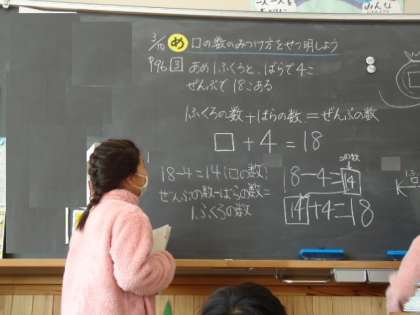 3/10 め □の数のみつけ方をせつ明しよう
P96 3 あめ1ふくろと、ばらで4こ
ぜんぶで18こある
1ふくろの数+ばらの数=ぜんぶの数
□+4=18
18-4=14(□の数)
ぜんぶの数-ばらの数=
1ふくろの数
□の数
18-4=14
14+4=18
みんな